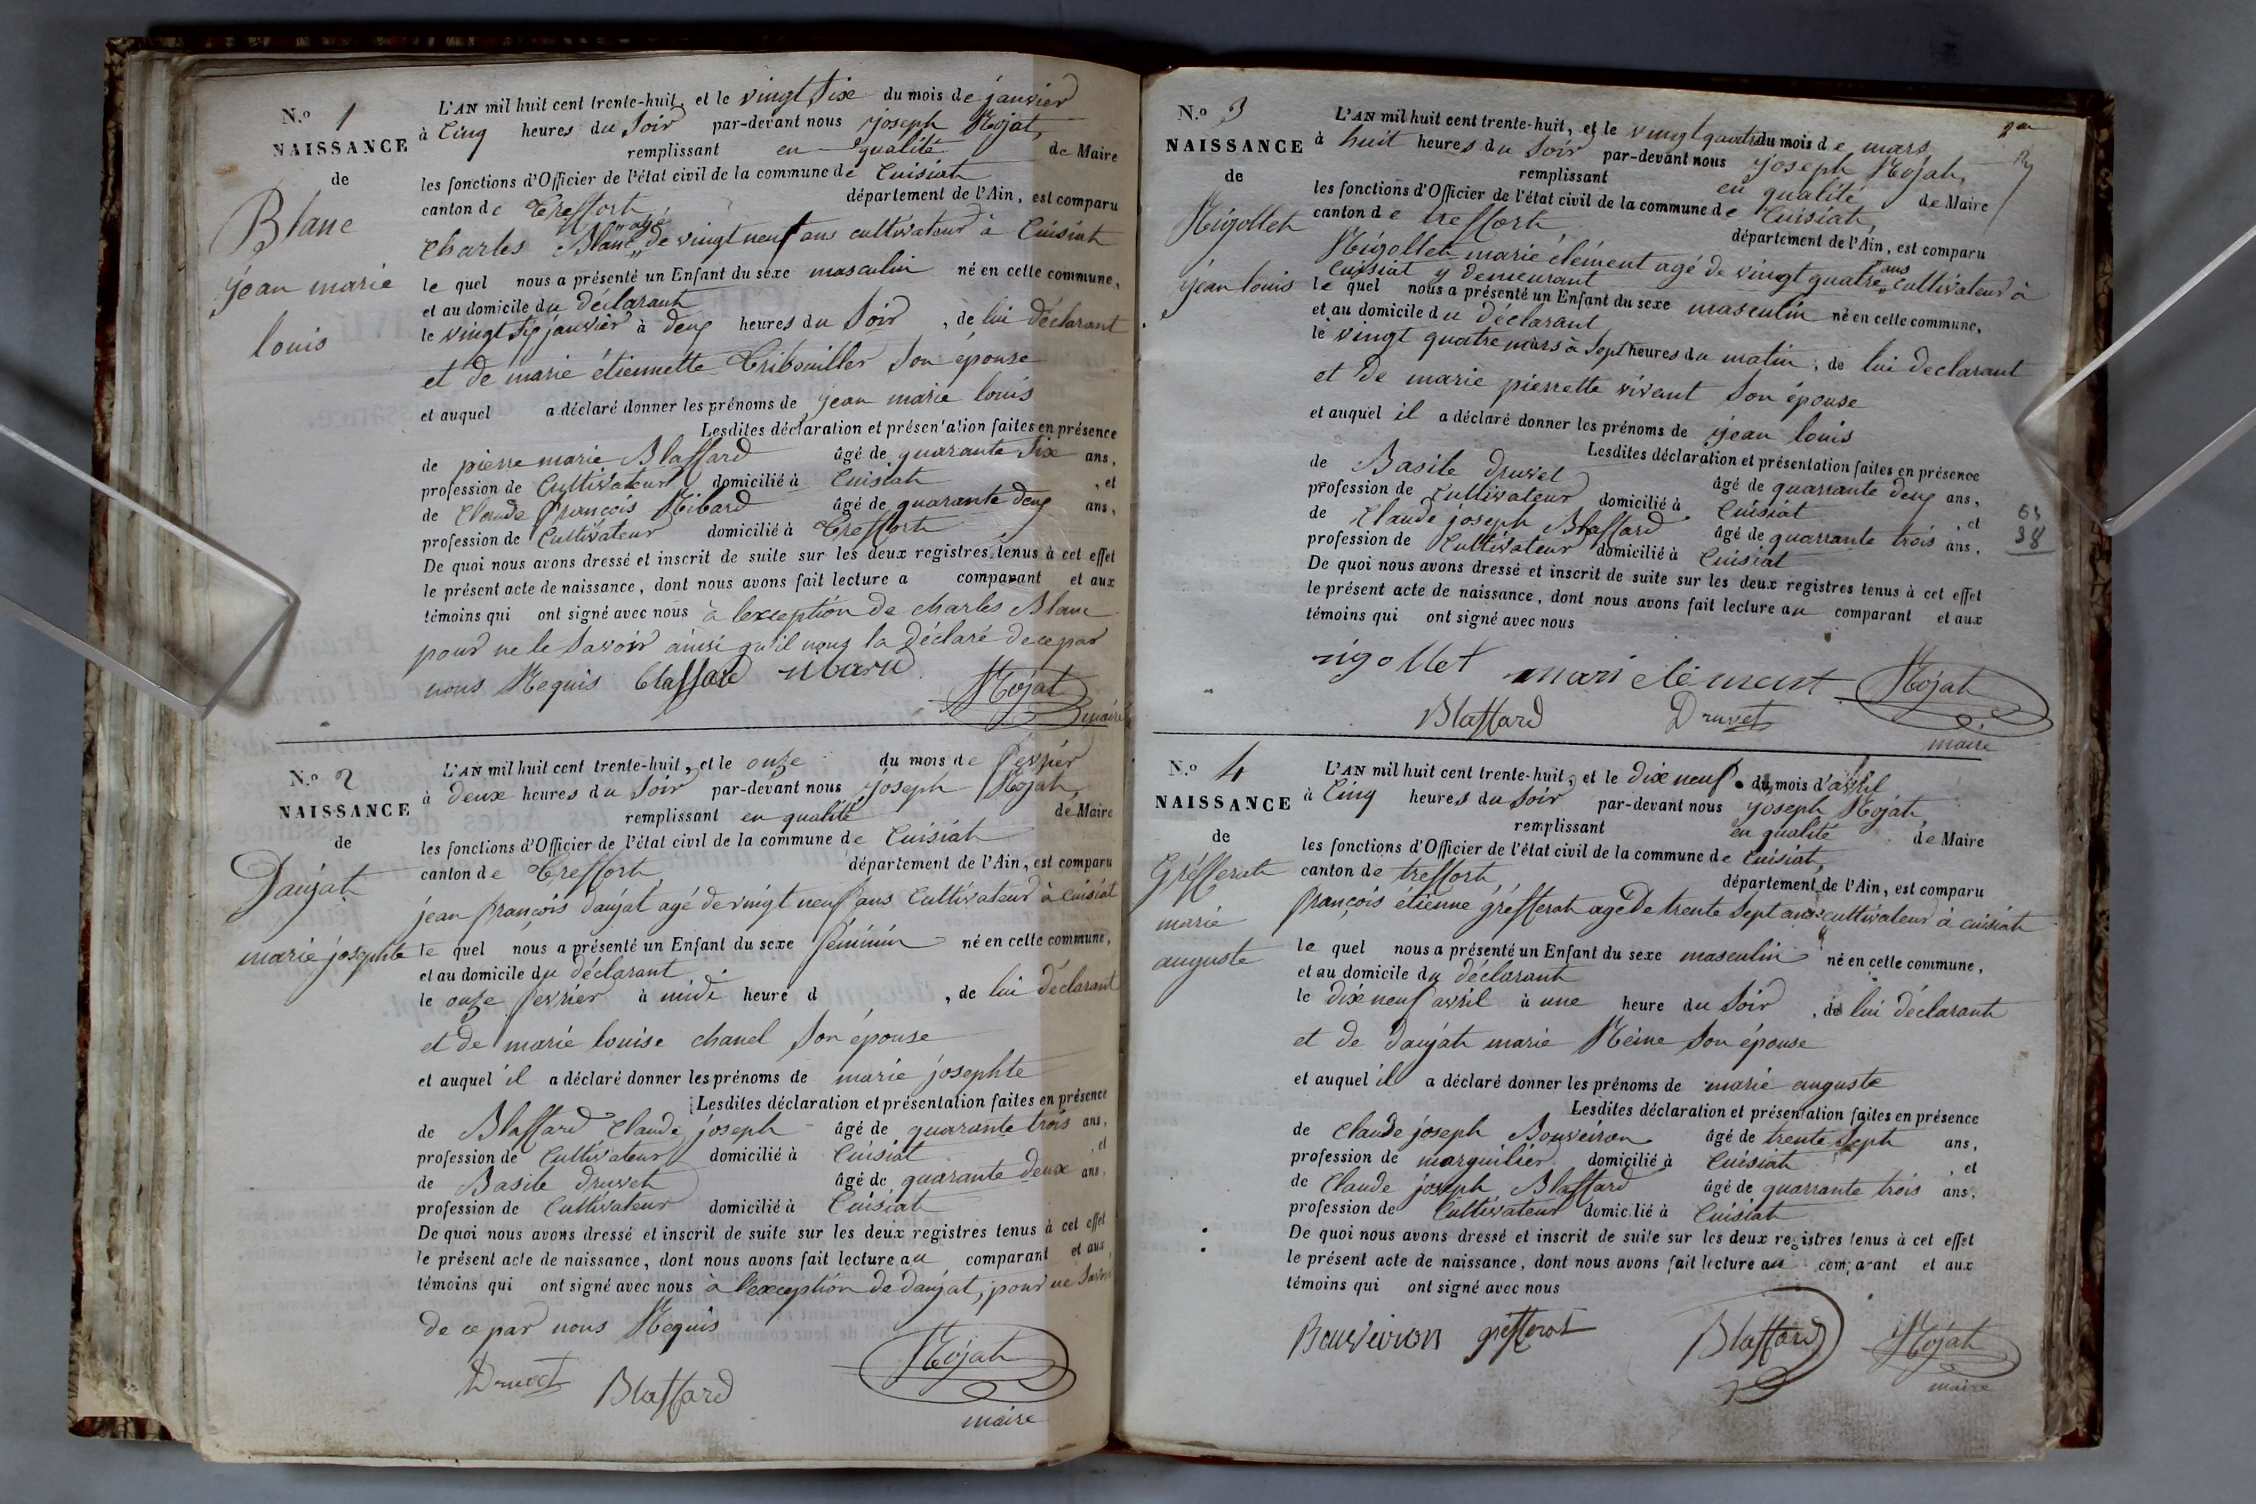 N.o 1
NAISSANCE
de
Blanc
jean marie
louis
L'AN mil huit cent trente-huit, et le vingt six du mois de janvier
à Cinq heures du Soir par-devant nous joseph Rojat,
remplissant en qualité de Maire
les fonctions d'Officier de l'état civil de la commune de Cuisiat
canton de Treffort département de l'Ain, est comparu
Charles Blanc agé de vingt neuf ans cultivateur à Cuisiat
le quel nous a présenté un Enfant du sexe masculin né en cette commune,
et au domicile du déclarant
le vingt six janvier à deux heures du Soir, de lui déclarant
et de marie étiennette Tribouillet Son épouse
et auquel a déclaré donner les prénoms de jean marie louis
Lesdites déclaration et présentation faites en présence
de pierre marie Blaffard âgé de quarante Six ans,
profession de Cultivateur domicilié à Cuisiat, et
de Claude françois Ribard âgé de quarante deux ans,
profession de Cultivateur domicilié à Treffort
De quoi nous avons dressé et inscrit de suite sur les deux registres tenus à cet effet
le présent acte de naissance, dont nous avons fait lecture a comparant et aux
témoins qui ont signé avec nous à l'exception de charles Blanc
pour ne le Savoir ainsi qu'il nous la Déclaré de ce par
nous Requis Blaffard Rojat
maire
N.o 2
NAISSANCE
de
Daujat
marie josephte
L'AN mil huit cent trente-huit, et le onze du mois de février
à deux heures du Soir par-devant nous joseph Rojat,
remplissant en qualité de Maire
les fonctions d'Officier de l'état civil de la commune de Cuisiat
canton de Treffort département de l'Ain, est comparu
jean françois daujat agé de vingt neuf ans Cultivateur à cuisiat
le quel nous a présenté un Enfant du sexe féminin né en cette commune,
et au domicile du déclarant
le onze fevrier à midi heure d, de lui déclarant
et de marie louise chanel Son épouse
et auquel il a déclaré donner les prénoms de marie josephte
Lesdites déclaration et présentation faites en présence
de Blaffard Claude joseph âgé de quarante trois ans,
profession de Cultivateur domicilié à Cuisiat, et
de Basile druvet âgé de quarante deux ans,
profession de Cultivateur domicilié à Cuisiat
De quoi nous avons dressé et inscrit de suite sur les deux registres tenus à cet effet
le présent acte de naissance, dont nous avons fait lecture au comparant et aux
témoins qui ont signé avec nous à l'exception de daujat, pour ne Savoir
de ce par nous Requis
Druvet Blaffard Rojat
maire
N.o 3
NAISSANCE
de
Rigollet
jean louis
L'AN mil huit cent trente-huit, et le vingt quatre du mois de mars
à huit heures du Soir par-devant nous joseph Rojat,
remplissant en qualité de Maire
les fonctions d'Officier de l'état civil de la commune de Cuisiat,
canton de treffort département de l'Ain, est comparu
Rigollet marie clément agé de vingt quatre ans cultivateur à
cuisiat y demeurant
le quel nous a présenté un Enfant du sexe masculin né en cette commune,
et au domicile du déclarant
le vingt quatre mars à Sept heures du matin, de lui déclarant
et de marie pierrette vivant Son épouse
et auquel il a déclaré donner les prénoms de jean louis
Lesdites déclaration et présentation faites en présence
de Basile druvet âgé de quarrante deux ans,
profession de Cultivateur domicilié à Cuisiat, et
de Claude joseph Blaffard âgé de quarrante trois ans,
profession de Cultivateur domicilié à Cuisiat
De quoi nous avons dressé et inscrit de suite sur les deux registres tenus à cet effet
le présent acte de naissance, dont nous avons fait lecture au comparant et aux
témoins qui ont signé avec nous
rigollet mari clément Rojat
Blaffard Druvet
maire
38
N.o 4
NAISSANCE
de
Gréfferat
marie
auguste
L'AN mil huit cent trente-huit, et le dix neuf du mois d'avril
à Cinq heures du Soir par-devant nous joseph Rojat
remplissant en qualité de Maire
les fonctions d'Officier de l'état civil de la commune de Cuisiat,
canton de treffort département de l'Ain, est comparu
françois étienne gréfferat agé De trente Sept ans cultivateur à cuisiat
le quel nous a présenté un Enfant du sexe masculin né en cette commune,
et au domicile du déclarant
le dix neuf avril à une heure du Soir, de lui déclarant
et de daujat marie Reine Son épouse
et auquel il a déclaré donner les prénoms de marie auguste
Lesdites déclaration et présentation faites en présence
de Claude joseph Bouveiron âgé de trente Sept ans,
profession de marguilier domicilié à Cuisiat, et
de Claude joseph Blaffard âgé de quarrante trois ans,
profession de Cultivateur domicilié à Cuisiat
De quoi nous avons dressé et inscrit de suite sur les deux registres tenus à cet effet
le présent acte de naissance, dont nous avons fait lecture au comparant et aux
témoins qui ont signé avec nous
Bouveiron grefferat Blaffard Rojat
maire